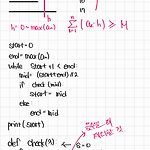 h
h=0~max(an)
Σ (ai-h) ≥ M
n
i=1
start=0
end=max(an)
while start+1 < end:
mid=(start+end)//2
if check(mid):
start=mid
else
end=mid
print(start)
def check(h):
S=0